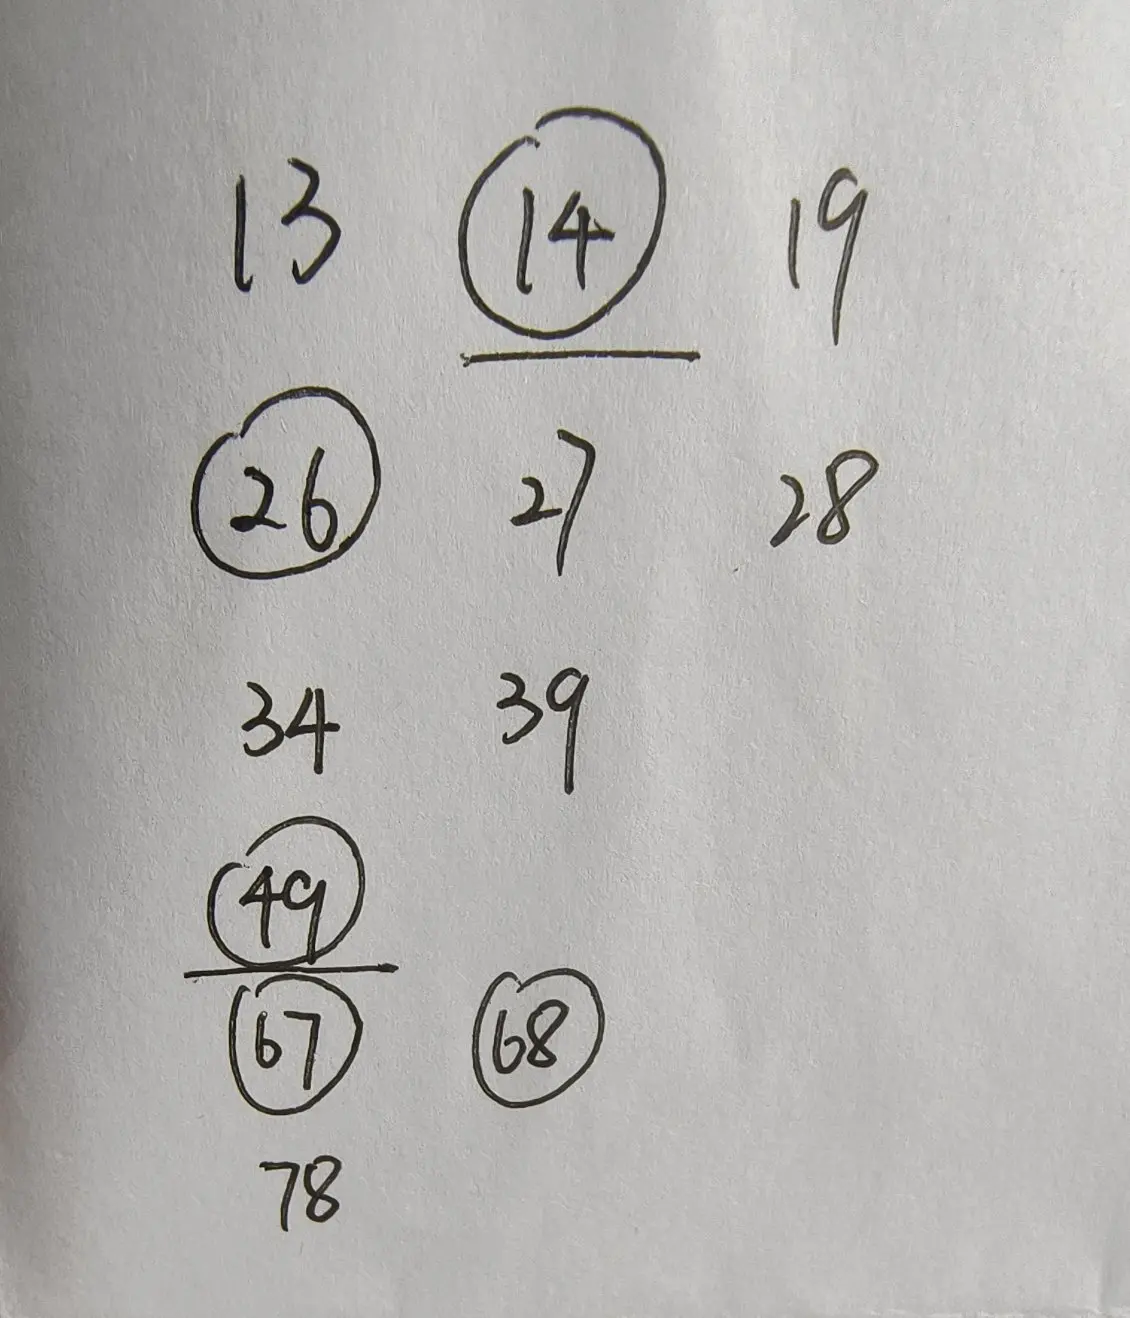 13 14 19
26 27 28
34 39
49
67 68
78